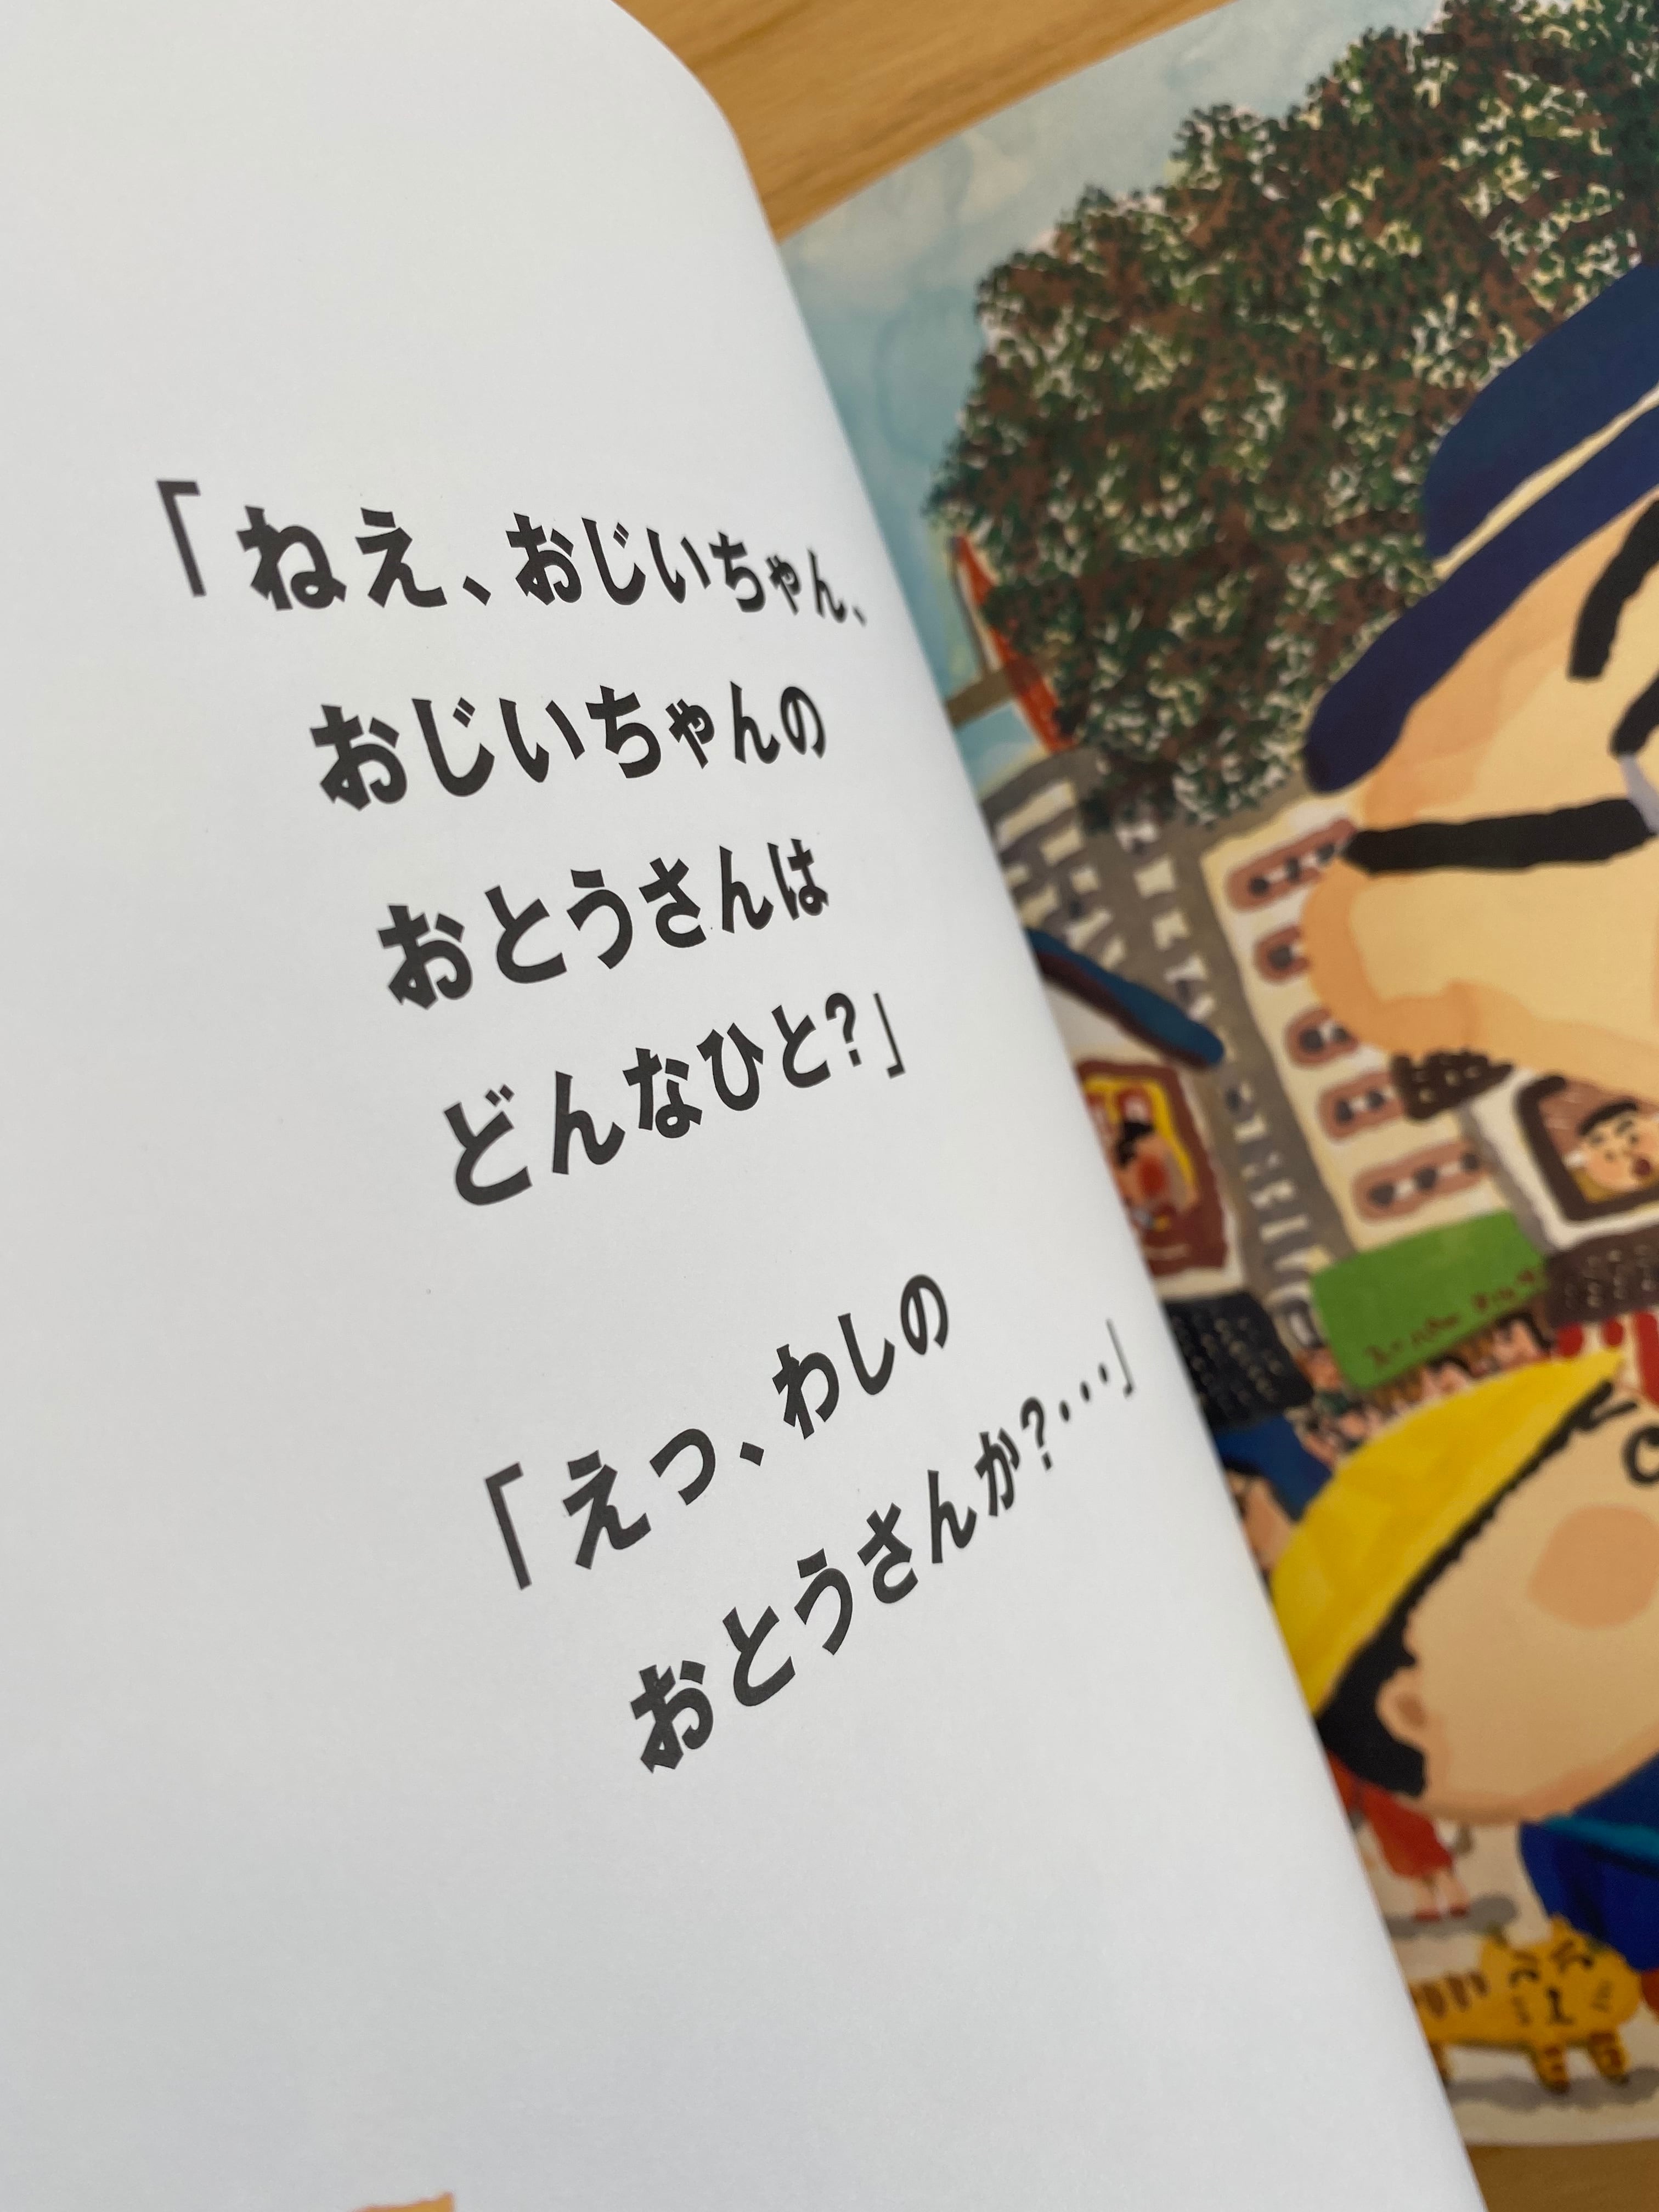 「ねえ、おじいちゃん、
おじいちゃんの
おとうさんは
どんなひと?」
「えっ、わしの
おとうさんか?・・・」